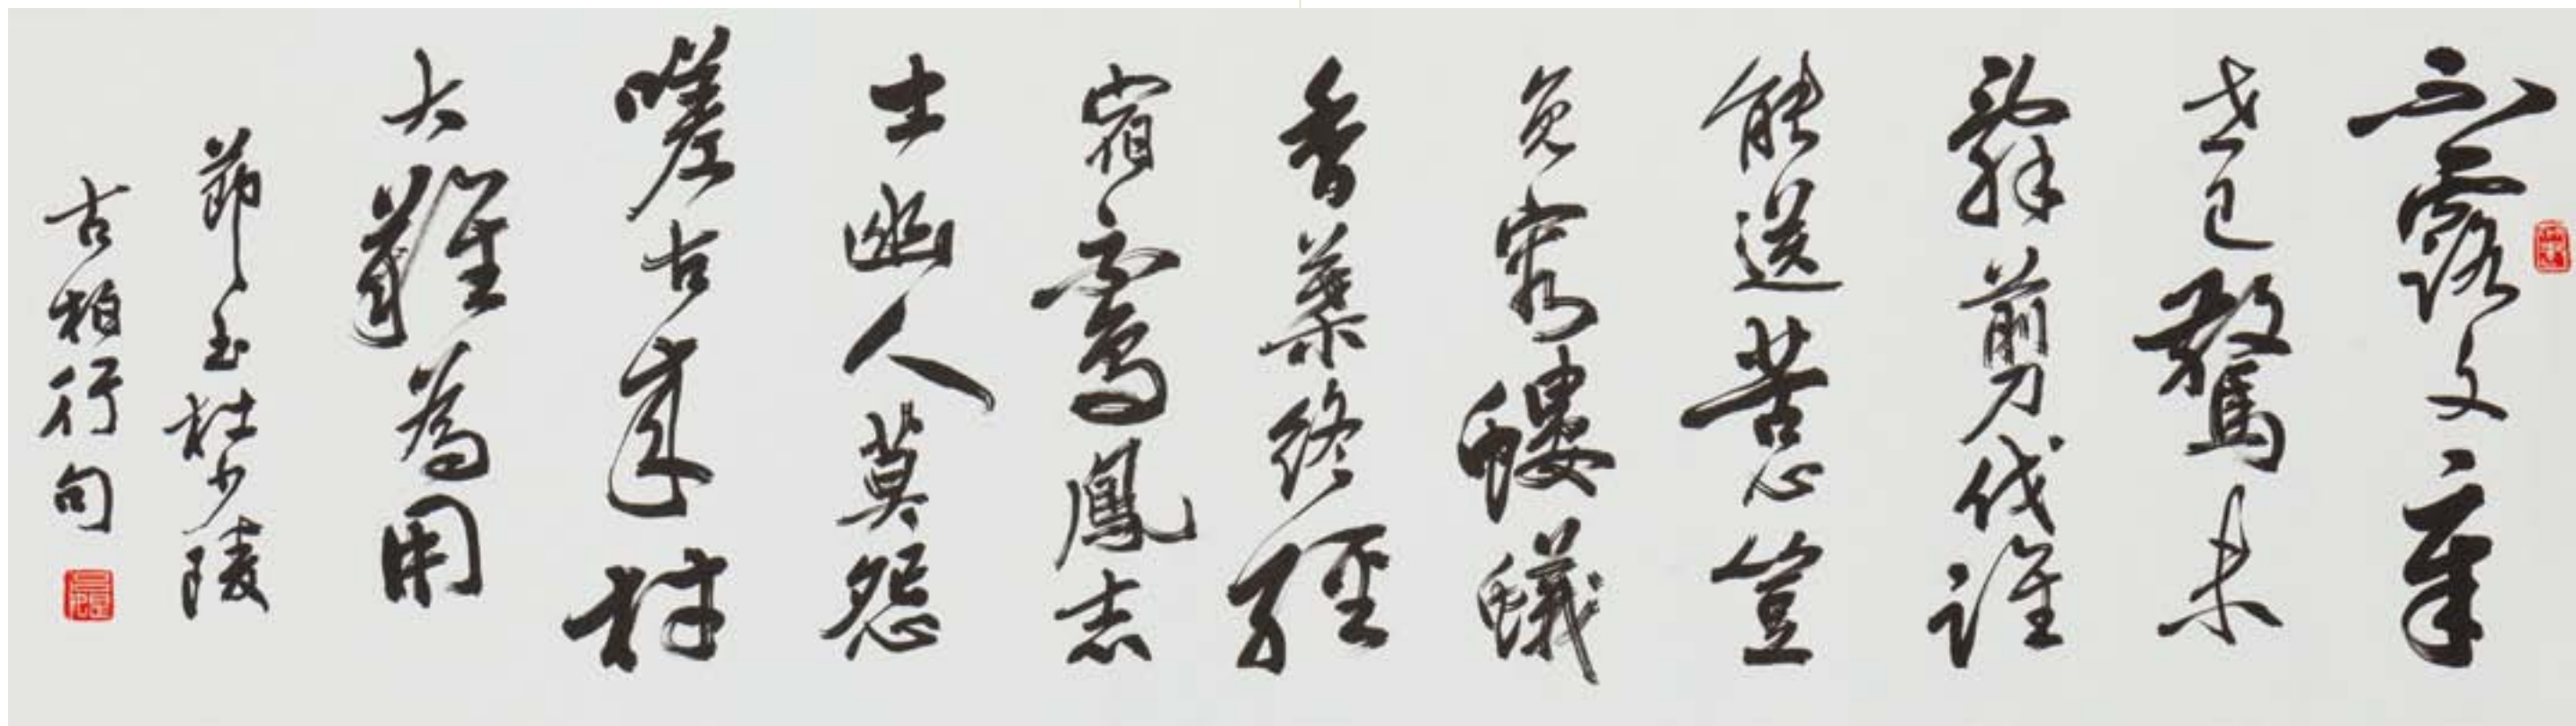 不露文章
世已驚未
辭剪伐誰
能送苦心豈
免容螻蟻
香葉終經
宿鸞鳳志
士幽人莫怨
嗟古来材
大難為用
節杜少陵
古柏行句